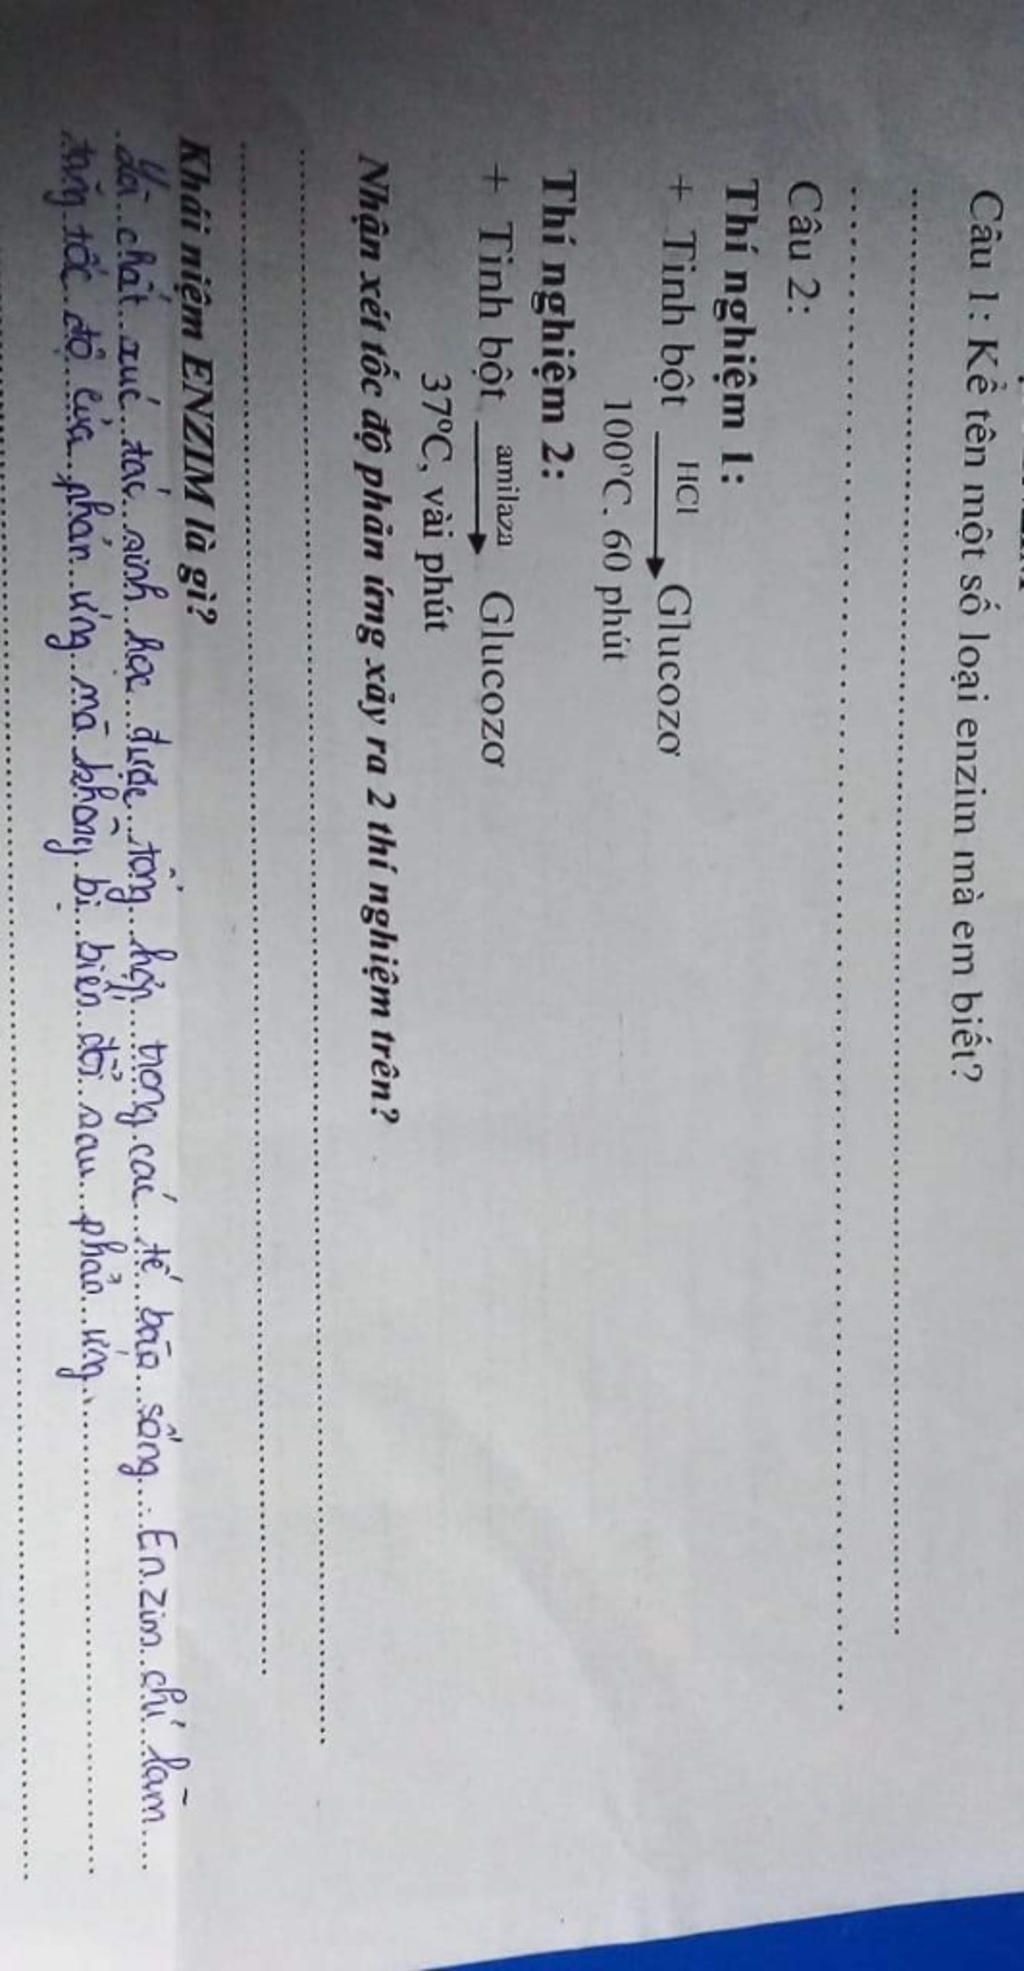 Câu 1: Kể tên một số loại enzim mà em biết?
Câu 2:
Thí nghiệm 1:
+ Tinh bột HCl Glucozơ
100°C. 60 phút
Thí nghiệm 2:
+ Tinh bột amilaza Glucozơ
37°C, vài phút
Nhận xét tốc độ phản ứng xảy ra 2 thí nghiệm trên?
Khái niệm ENZIM là gì?
là chất xúc tác sinh học được tổng hợp trong các tế bào sống. Enzim chỉ làm
tăng tốc độ của phản ứng mà không bị biến đổi sau phản ứng.